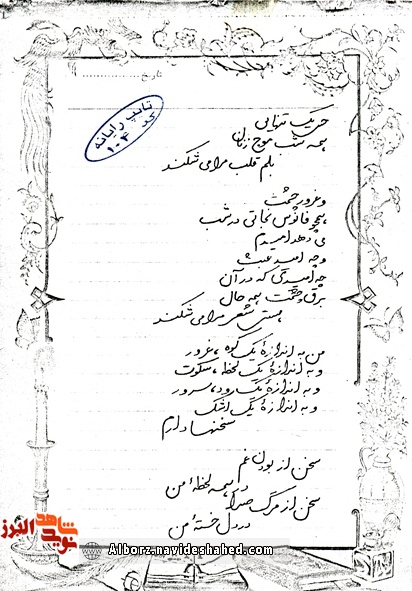 تاریخ
تایپ رایانه
کد ۱۰۴
حریک تنهایی
همه شب موج زنان
بلم قلب مرا می شکند
و غرور چشمت
همچو فانوس نجاتی در شب
می دهد امیدم
و چه امید عبث
چه امیدی که در آن
برق چشمت همه حال
هستی شعر مرا می شکند
من به اندازهٔ یک کوه، غرور
و به اندازهٔ یک لحظه، سکوت
و به اندازهٔ یک رود، سرور
و به اندازهٔ یک اشک
سخنها دارم
سخن از بودن غم
در همه لحظهٔ من
سخن از مرگ صدا
در دل خستهٔ من
نوید شاهد البرز
Alborz.navideshahed.com